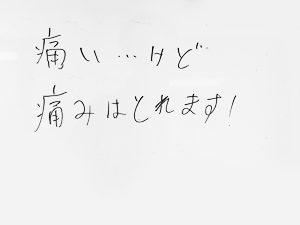 痛い…けど
痛みはとれます!